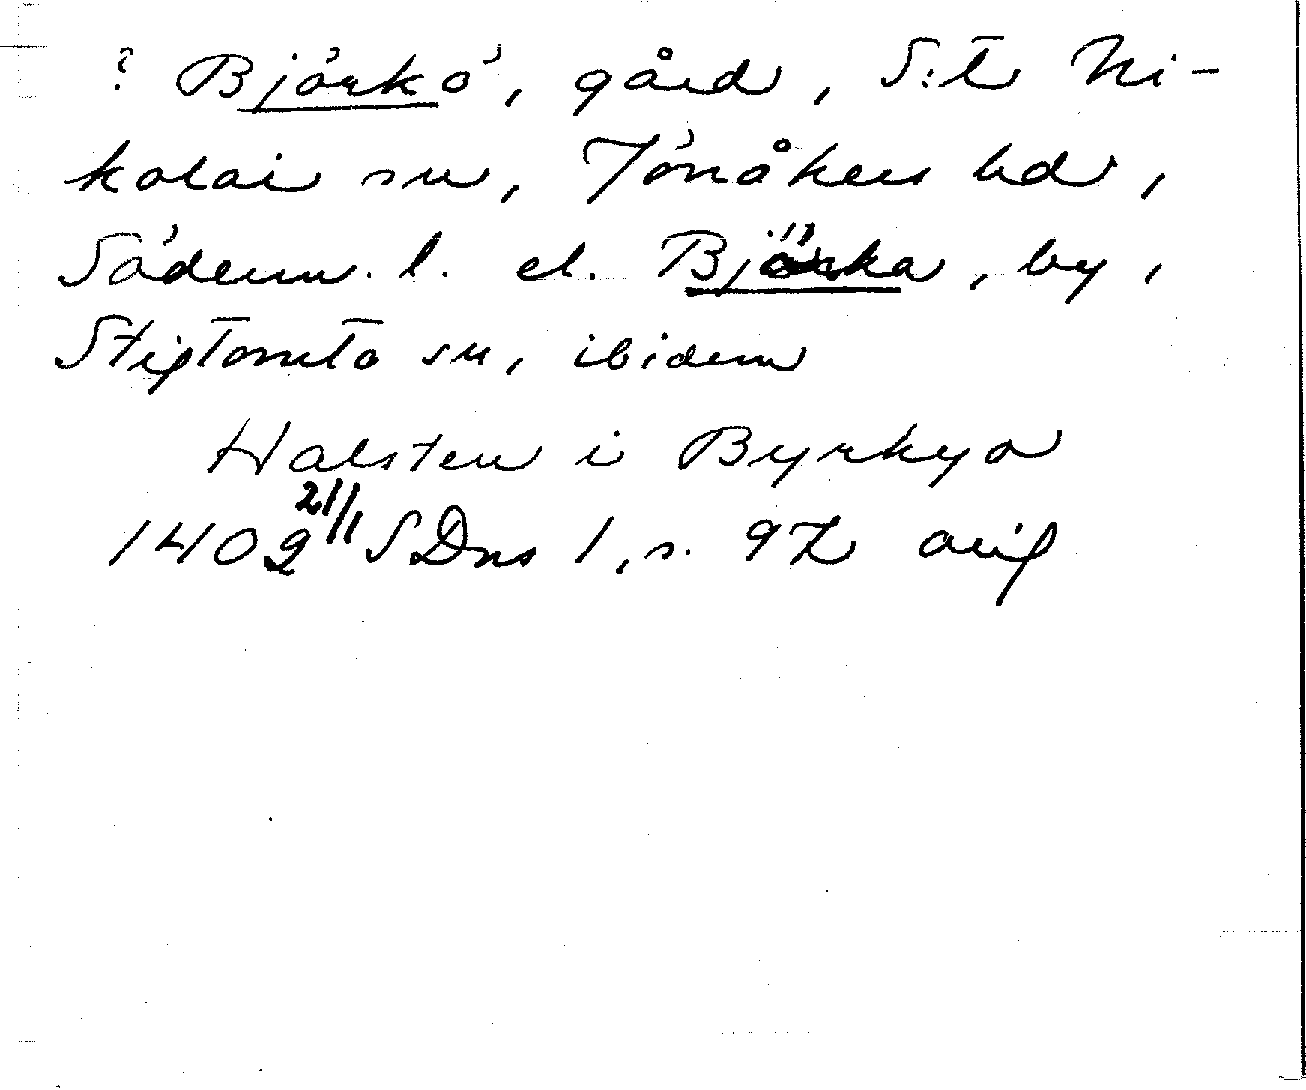 ? Björkö, gård, S:t Ni-
kolai sn, Jönåkers hd,
Söderm. l. el. Björka, by,
Stigtomta sn, ibidem
Halsten i Byrkyo
1402 21/1 SDns 1, s. 97 avig